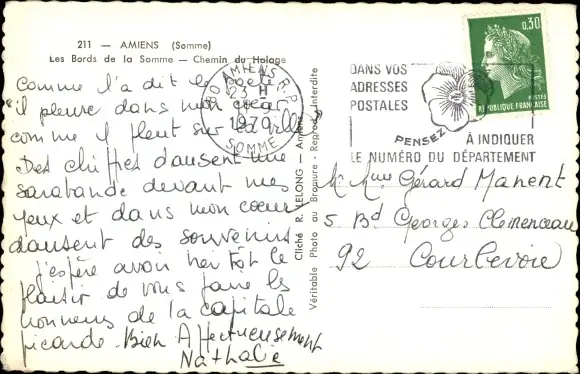 211 - AMIENS (Somme)
Les Bords de la Somme - Chemin du Halage
Comme l'a dit le poète
"il pleure dans mon cœur
comme il pleut sur la ville"
Des chiffres dansent une
sarabande devant mes
yeux et dans mon cœur
dansent des souvenirs
j'espère avoir bientôt le
plaisir de vous faire les
honneurs de la capitale
picarde. Bien Affectueusement
Nathalie
Cliché R. LELONG - Amiens
Véritable Photo au Bromure - Reprod. Interdite
80 AMIENS R.P.
23 H
1970
SOMME
DANS VOS
ADRESSES
POSTALES
PENSEZ
À INDIQUER
LE NUMÉRO DU DÉPARTEMENT
0,30
POSTES
REPUBLIQUE FRANÇAISE
M. Mme Gérard Manent
5 Bd Georges Clemenceau
92 Courbevoie